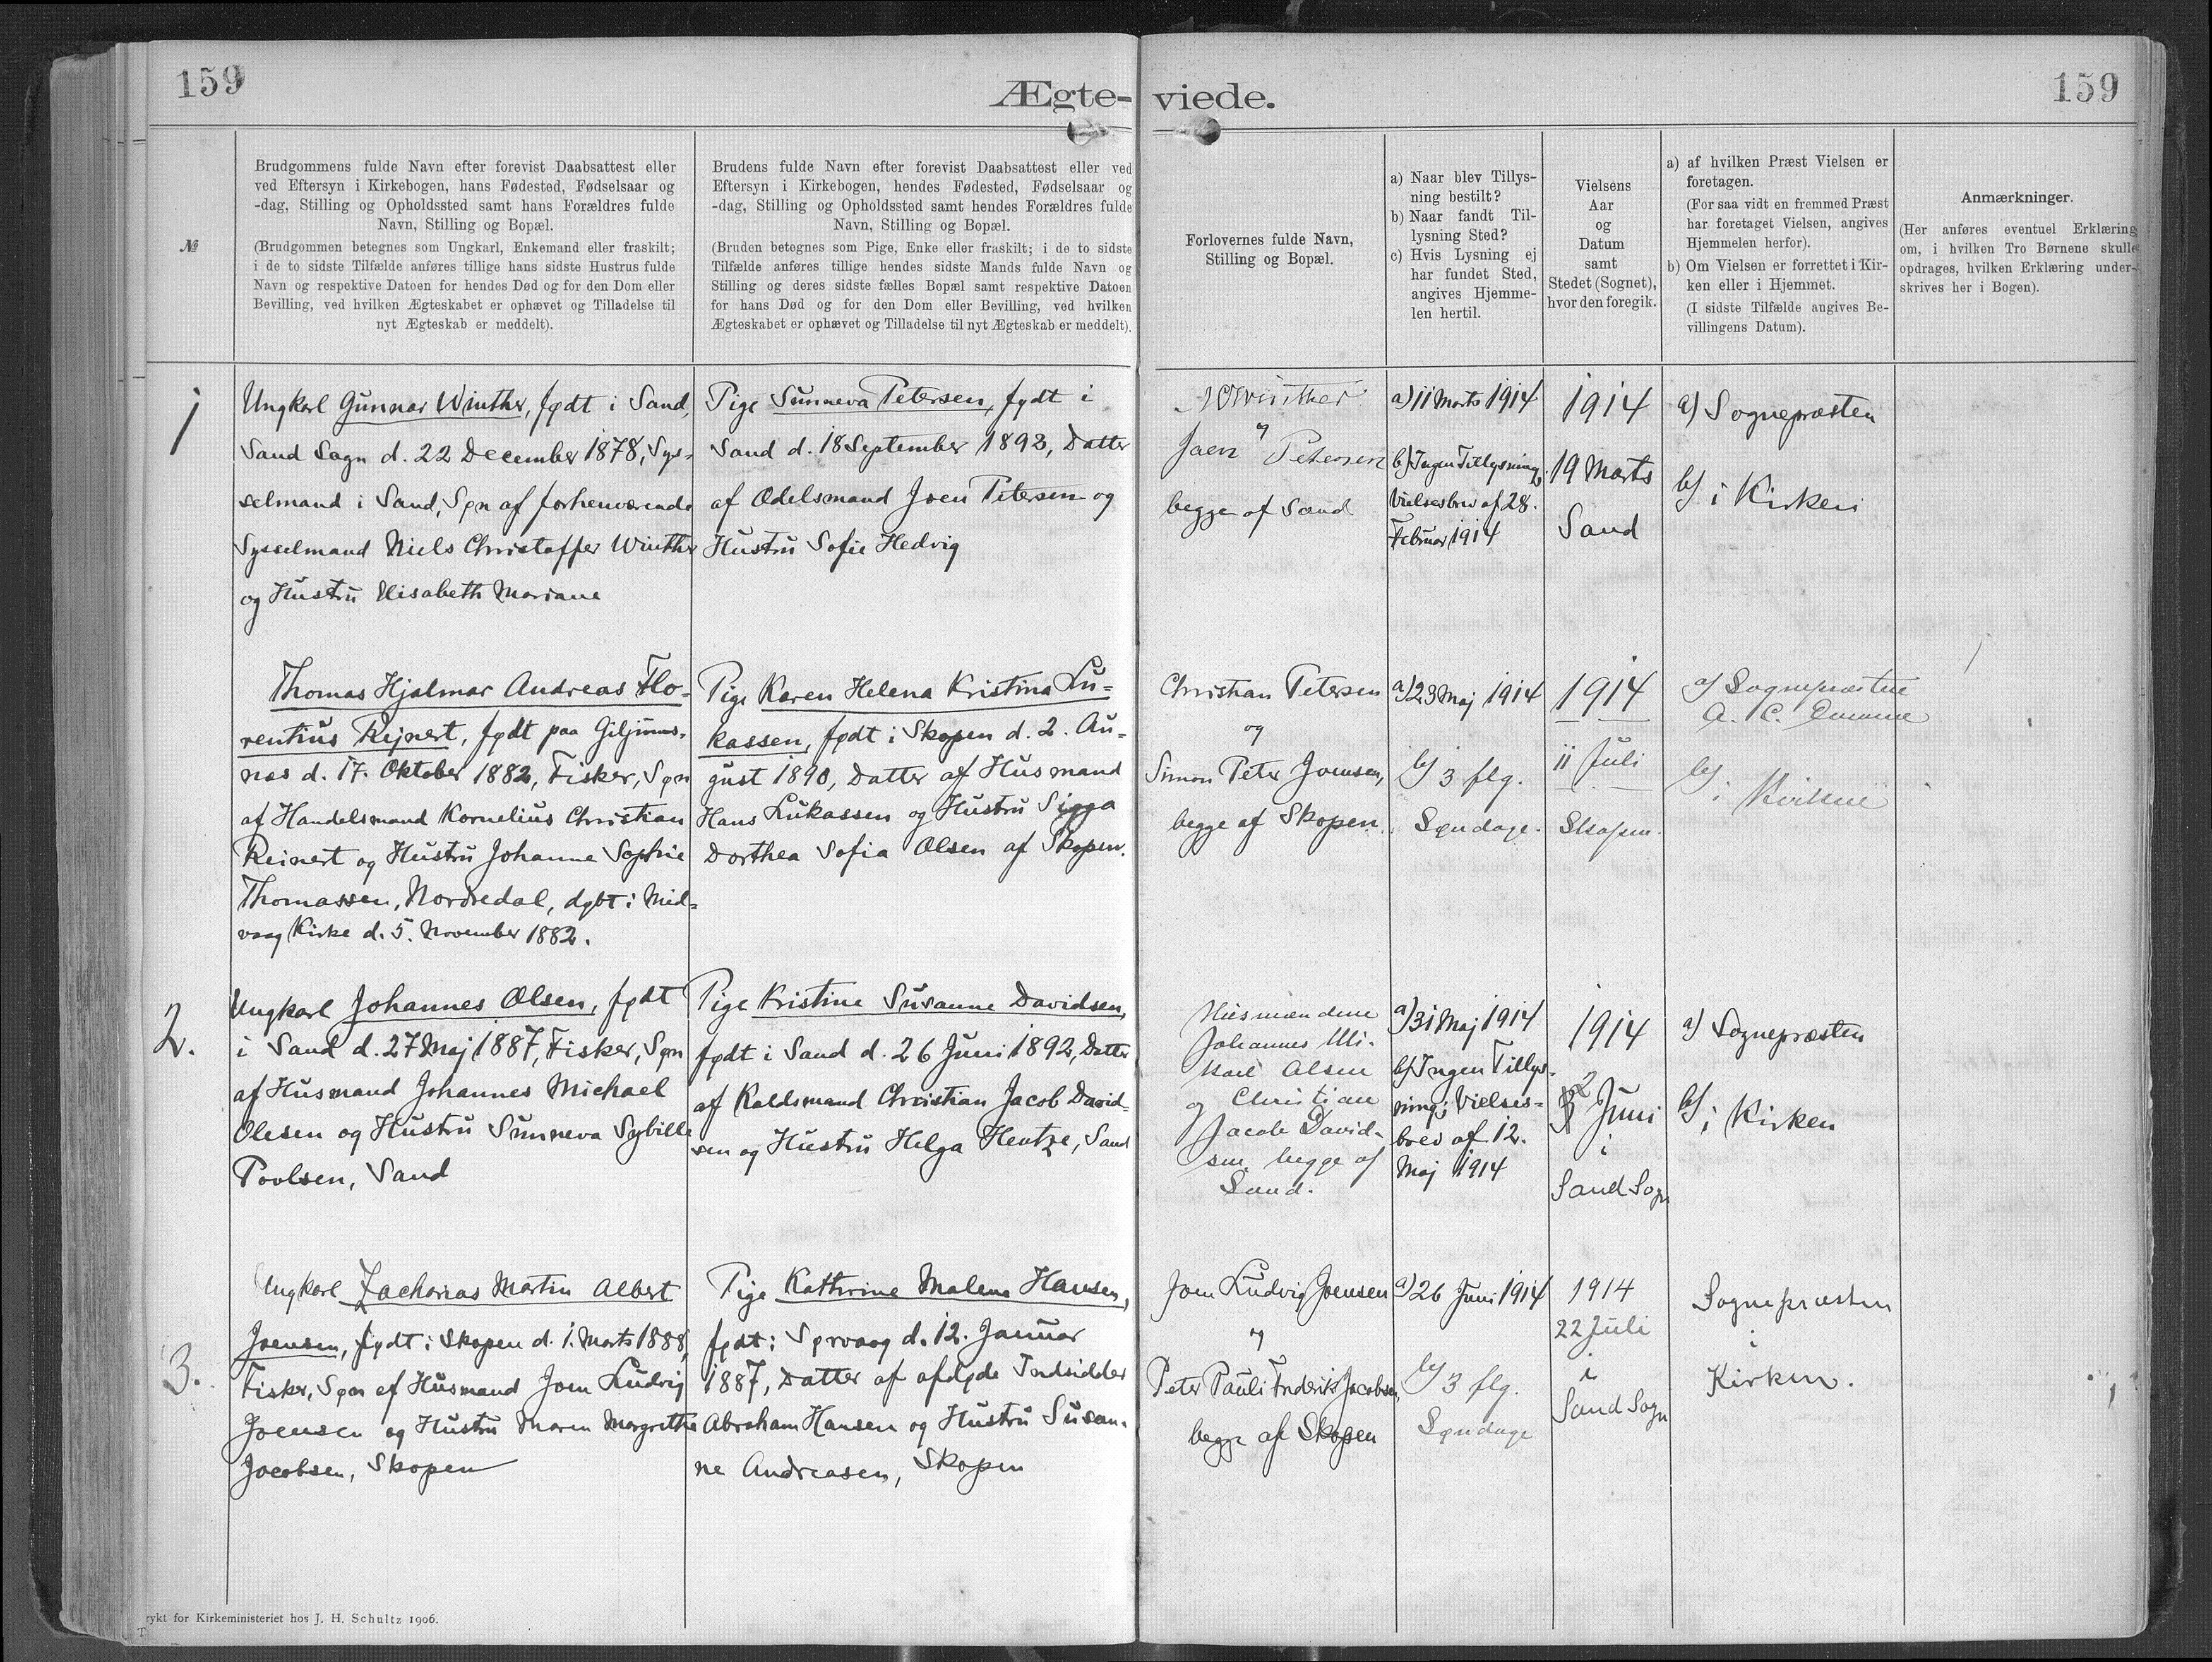 159
Ægte-
viede.
159
№
Brudgommens fulde Navn efter forevist Daabsattest eller
ved Eftersyn i Kirkebogen, hans Fødested, Fødselsaar og
-dag, Stilling og Opholdssted samt hans Forældres fulde
Navn, Stilling og Bopæl.
(Brudgommen betegnes som Ungkarl, Enkemand eller fraskilt;
i de to sidste Tilfælde anføres tillige hans sidste Hustrus fulde
Navn og respektive Datoen for hendes Død og for den Dom eller
Bevilling, ved hvilken Ægteskabet er ophævet og Tilladelse til
nyt Ægteskab er meddelt).
Brudens fulde Navn efter forevist Daabsattest eller ved
Eftersyn i Kirkebogen, hendes Fødested, Fødselsaar og
-dag, Stilling og Opholdssted samt hendes Forældres fulde
Navn, Stilling og Bopæl.
(Bruden betegnes som Pige, Enke eller fraskilt; i de to sidste
Tilfælde anføres tillige hendes sidste Mands fulde Navn og
Stilling og deres sidste fælles Bopæl samt respektive Datoen
for hans Død og for den Dom eller Bevilling, ved hvilken
Ægteskabet er ophævet og Tilladelse til nyt Ægteskab er meddelt).
Forlovernes fulde Navn,
Stilling og Bopæl.
a) Naar blev Tillys-
ning bestilt?
b) Naar fandt Til-
lysning Sted?
c) Hvis Lysning ej
har fundet Sted,
angives Hjemme-
len hertil.
Vielsens
Aar
og
Datum
samt
Stedet (Sognet),
hvor den foregik.
a) af hvilken Præst Vielsen er
foretagen.
(For saa vidt en fremmed Præst
har foretaget Vielsen, angives
Hjemmelen herfor).
b) Om Vielsen er forrettet i Kir-
ken eller i Hjemmet.
(I sidste Tilfælde angives Be-
villingens Datum).
Anmærkninger.
(Her anføres eventuel Erklæring
om, i hvilken Tro Børnene skulle
opdrages, hvilken Erklæring under-
skrives her i Bogen).
1
Ungkarl Gunnar Winther, født i Sand,
Sand Sogn d. 22 December 1878, Sys-
selmand i Sand, Søn af forhenværende
Sysselmand Niels Christoffer Winther
og Hustru Elisabeth Mariane
Pige Sunneva Petersen, født i
Sand d. 18 September 1893, Datter
af Odelsmand Joen Petersen og
Hustru Sofie Hedvig
Winther
og
Joen Petersen
begge af Sand
a) 11 Marts 1914
b) Ingen Tillysning,
Vielsesbrev af 28.
Februar 1914
1914
19 Marts
Sand
a) Sognepræsten
b) i Kirken
Thomas Hjalmar Andreas Flo-
rentius Rejnert, født paa Giljims-
næs d. 17. Oktober 1882, Fisker, Søn
af Handelsmand Kornelius Christian
Reinert og Hustru Johanne Sophie
Thomassen, Nordredal, døbt i Mid-
vaag Kirke d. 5. November 1882.
Pige Karen Helena Kristina Lu-
kassen, født i Skopen d. 2. Au-
gust 1890, Datter af Husmand
Hans Lukassen og Hustru Sigga
Dorthea Sofia Olsen af Skopen.
Christian Petersen
og
Simon Peter Joensen,
begge af Skopen.
a) 23 Maj 1914
b) 3 flg.
Søndage.
1914
11 Juli
Skopen.
a) Sognepræsten
A. C.
b) i Kirken
2.
Ungkarl Johannes Olsen, født
i Sand d. 27 Maj 1887, Fisker, Søn
af Husmand Johannes Michael
Olesen og Hustru Sunneva Sybille
Poulsen, Sand
Pige Kristine Susanne Davidsen,
født i Sand d. 26 Juni 1892, Datter
af Kaldsmand Christian Jacob David-
sen og Hustru Helga Hentze, Sand
Husmændene
Johannes Mi-
kael Olsen
og Christian
Jacob David-
sen begge af
Sand.
a) 31 Maj 1914
b) Ingen Tillys-
ning; Vielses-
brev af 12.
Maj 1914
1914
2 Juni
i
Sand Sogn
a) Sognepræsten
b) i Kirken
3.
Ungkarl Zacharias Martin Albert
Joensen, født i Skopen d. 1. Marts 1888,
Fisker, Søn af Husmand Joen Ludvig
Joensen og Hustru Maren Margrethe
Jacobsen, Skopen
Pige Kathrine Malene Hansen,
født i Sørvaag d. 12. Januar
1887, Datter af afdøde Indsidder
Abraham Hansen og Hustru Susan-
ne Andreasen, Skopen
Joen Ludvig Joensen
og
Peter Pauli Frederik Jacobsen,
begge af Skopen
a) 26 Juni 1914
b) 3 flg.
Søndage
1914
22 Juli
i
Sand Sogn
Sognepræsten
i
Kirken.
rykt for Kirkeministeriet hos J. H. Schultz 1906.